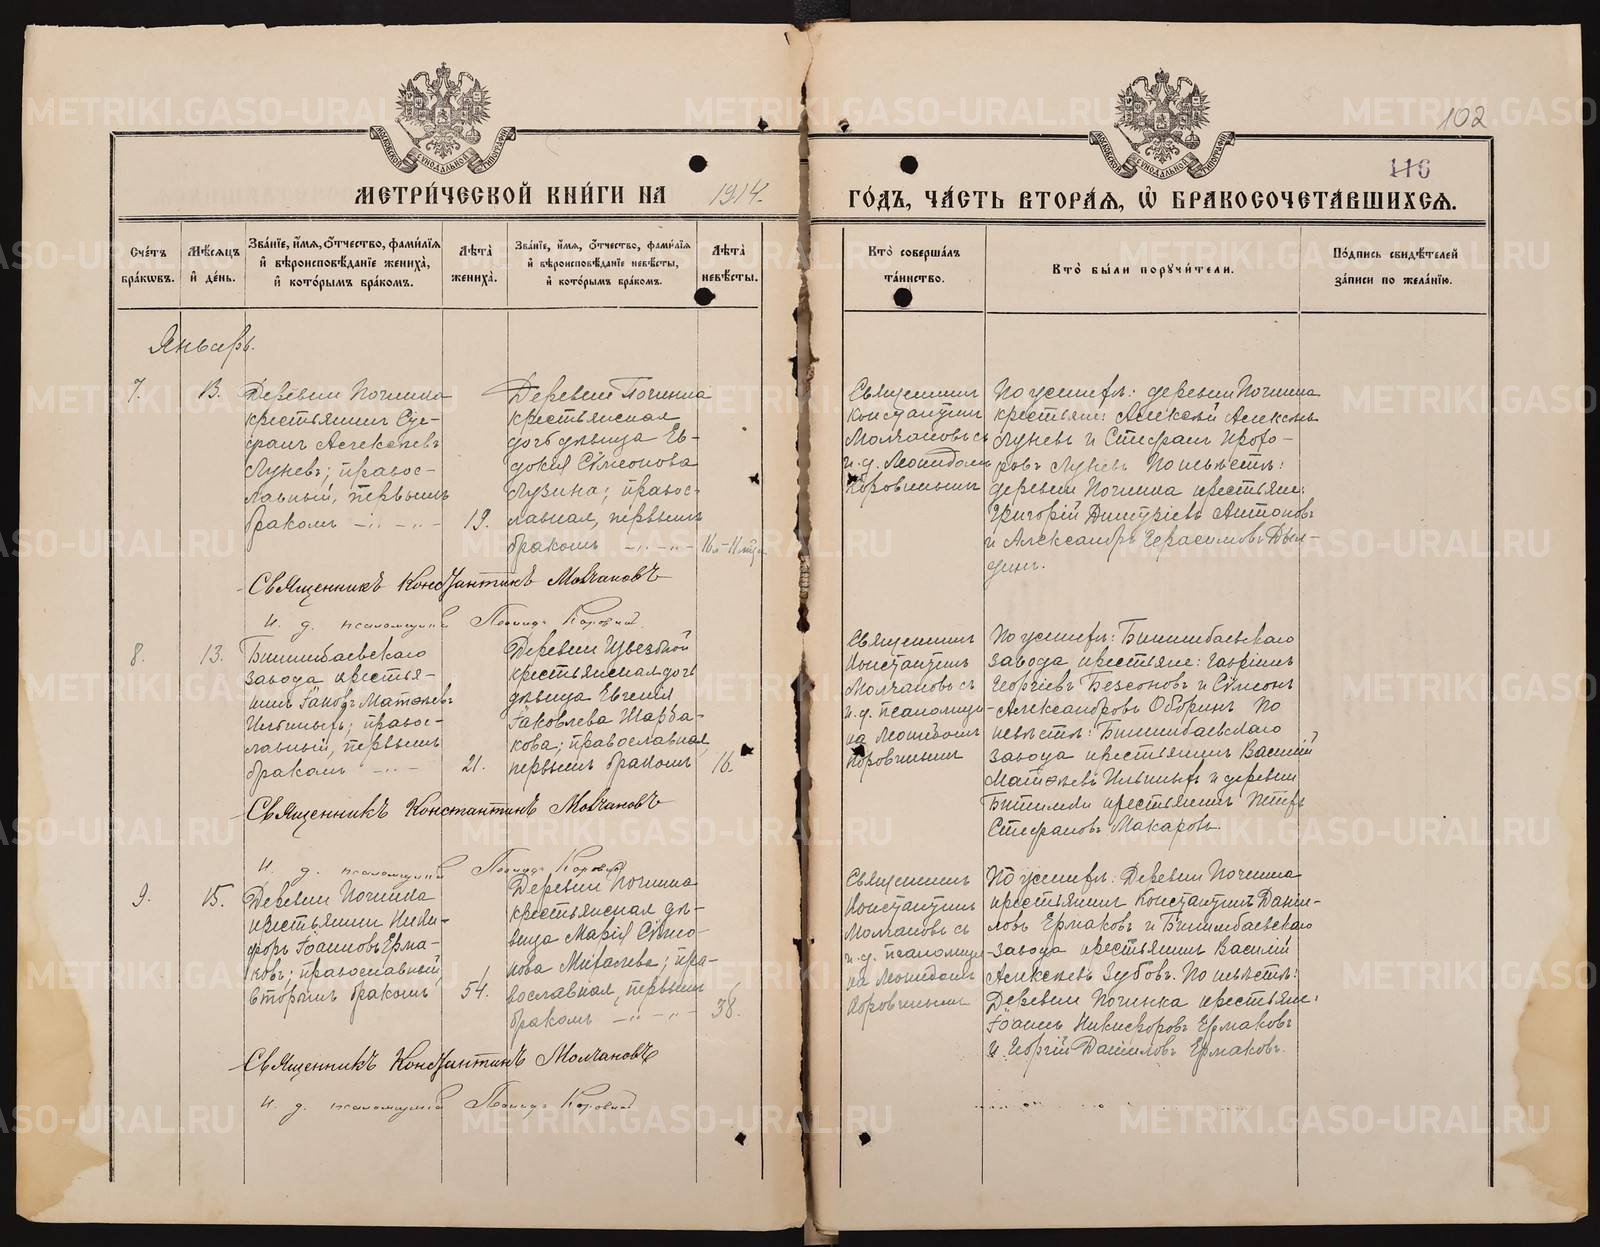 МЕТРИ́ЧЕСКОЙ КНИ́ГИ НА 1914.
ГО́ДЪ, ЧА́СТЬ ВТОРА́Ѧ, Ѽ БРАКОСОЧЕТА́ВШИХСѦ.
102
116
Сче́тъ бра́кѡвъ.
Мѣ́сѧцъ и҆ де́нь.
Зва́нїе, и҆́мѧ, ѻ҆́тчество, фами́лїѧ и҆ вѣроисповѣ́данїе жениха̀, и҆ кото́рымъ бра́комъ.
Лѣ́та жениха̀.
Зва́нїе, и҆́мѧ, ѻ҆́тчество, фами́лїѧ и҆ вѣроисповѣ́данїе невѣ́сты, и҆ кото́рымъ бра́комъ.
Лѣ́та невѣ́сты.
Кто̀ соверша́лъ та́инство.
Кто̀ бы́ли поручи́тели.
По́дпись свидѣ́телей за́писи по жела́нїю.
Январь.
7.
13.
Деревни Починка
крестьянинъ
Алексѣевъ
Луневъ; правос-
лавный, первымъ
бракомъ
19.
Деревни Починка
крестьянская
дочь дѣвица Ев-
докія Сѵмеонова
Лузина; правос-
лавная, первымъ
бракомъ
Священникъ
Константинъ
Молчановъ съ
и. д.
Коровинымъ
По женихѣ: деревни Починка
крестьяне: Алексѣй Алексѣевъ
Луневъ и Стефанъ Ѳеодо-
ровъ Луневъ По невѣстѣ:
деревни Починка крестьяне:
Григорій Димитріевъ Антоновъ
и Александръ Герасимовъ Дыл-
динъ.
Священникъ Константинъ Молчановъ
И. д. псаломщика Леонидъ Коровинъ
8.
13.
Билимбаевскаго
завода крестья-
нинъ Іаковъ Матѳеевъ
Ильиныхъ; правос-
лавный, первымъ
бракомъ
21.
Деревни
крестьянская дочь
дѣвица Евгенія
Іаковлева Шарба-
кова; православная,
первымъ бракомъ
16.
Священникъ
Константинъ
Молчановъ съ
и. д. псаломщи-
ка Леонидомъ
Коровинымъ
По женихѣ: Билимбаевскаго
завода крестьяне: Гавріилъ
Георгіевъ Безсоновъ и Сѵмеонъ
Александровъ Оборинъ По
невѣстѣ: Билимбаевскаго
завода крестьянинъ Василій
Матѳеевъ Ильиныхъ и деревни
Битимки крестьянинъ Петръ
Стефановъ Макаровъ.
Священникъ Константинъ Молчановъ
И. д. псаломщика Леонидъ Коровинъ
9.
15.
Деревни Починка
крестьянинъ Ники-
форъ Іоанновъ Ерма-
ковъ; православный,
вторымъ бракомъ
54.
Деревни Починка
крестьянская дѣ-
вица Марія Сѵмео-
нова Мигалева; пра-
вославная, первымъ
бракомъ
38.
Священникъ
Константинъ
Молчановъ съ
и. д. псаломщи-
ка Леонидомъ
Коровинымъ
По женихѣ: Деревни Починка
крестьянинъ Константинъ Даніи-
ловъ Ермаковъ и Билимбаевскаго
завода крестьянинъ Василій
Алексѣевъ Зубовъ. По невѣстѣ:
Деревни Починка крестьяне:
Іоаннъ Никифоровъ Ермаковъ
и Георгій Даніиловъ Ермаковъ.
Священникъ Константинъ Молчановъ
И. д. псаломщика Леонидъ Коровинъ
METRIKI.GASO-URAL.RU